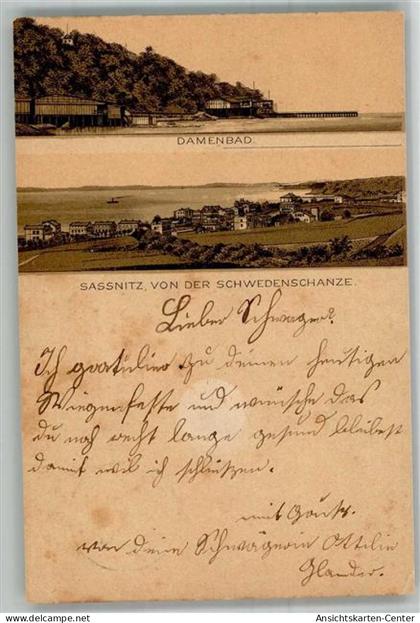 DAMENBAD.
SASSNITZ, VON DER SCHWEDENSCHANZE.
Lieber Schwager!
Ich gratulier zu deinen heutigen
Wiegenfeste und wünsche das
du noch recht lange gesund bleibest
damit wil ich schließen.
mit Gruß.
von deine Schwägerin Ottilie
Ansichtskarten-Center